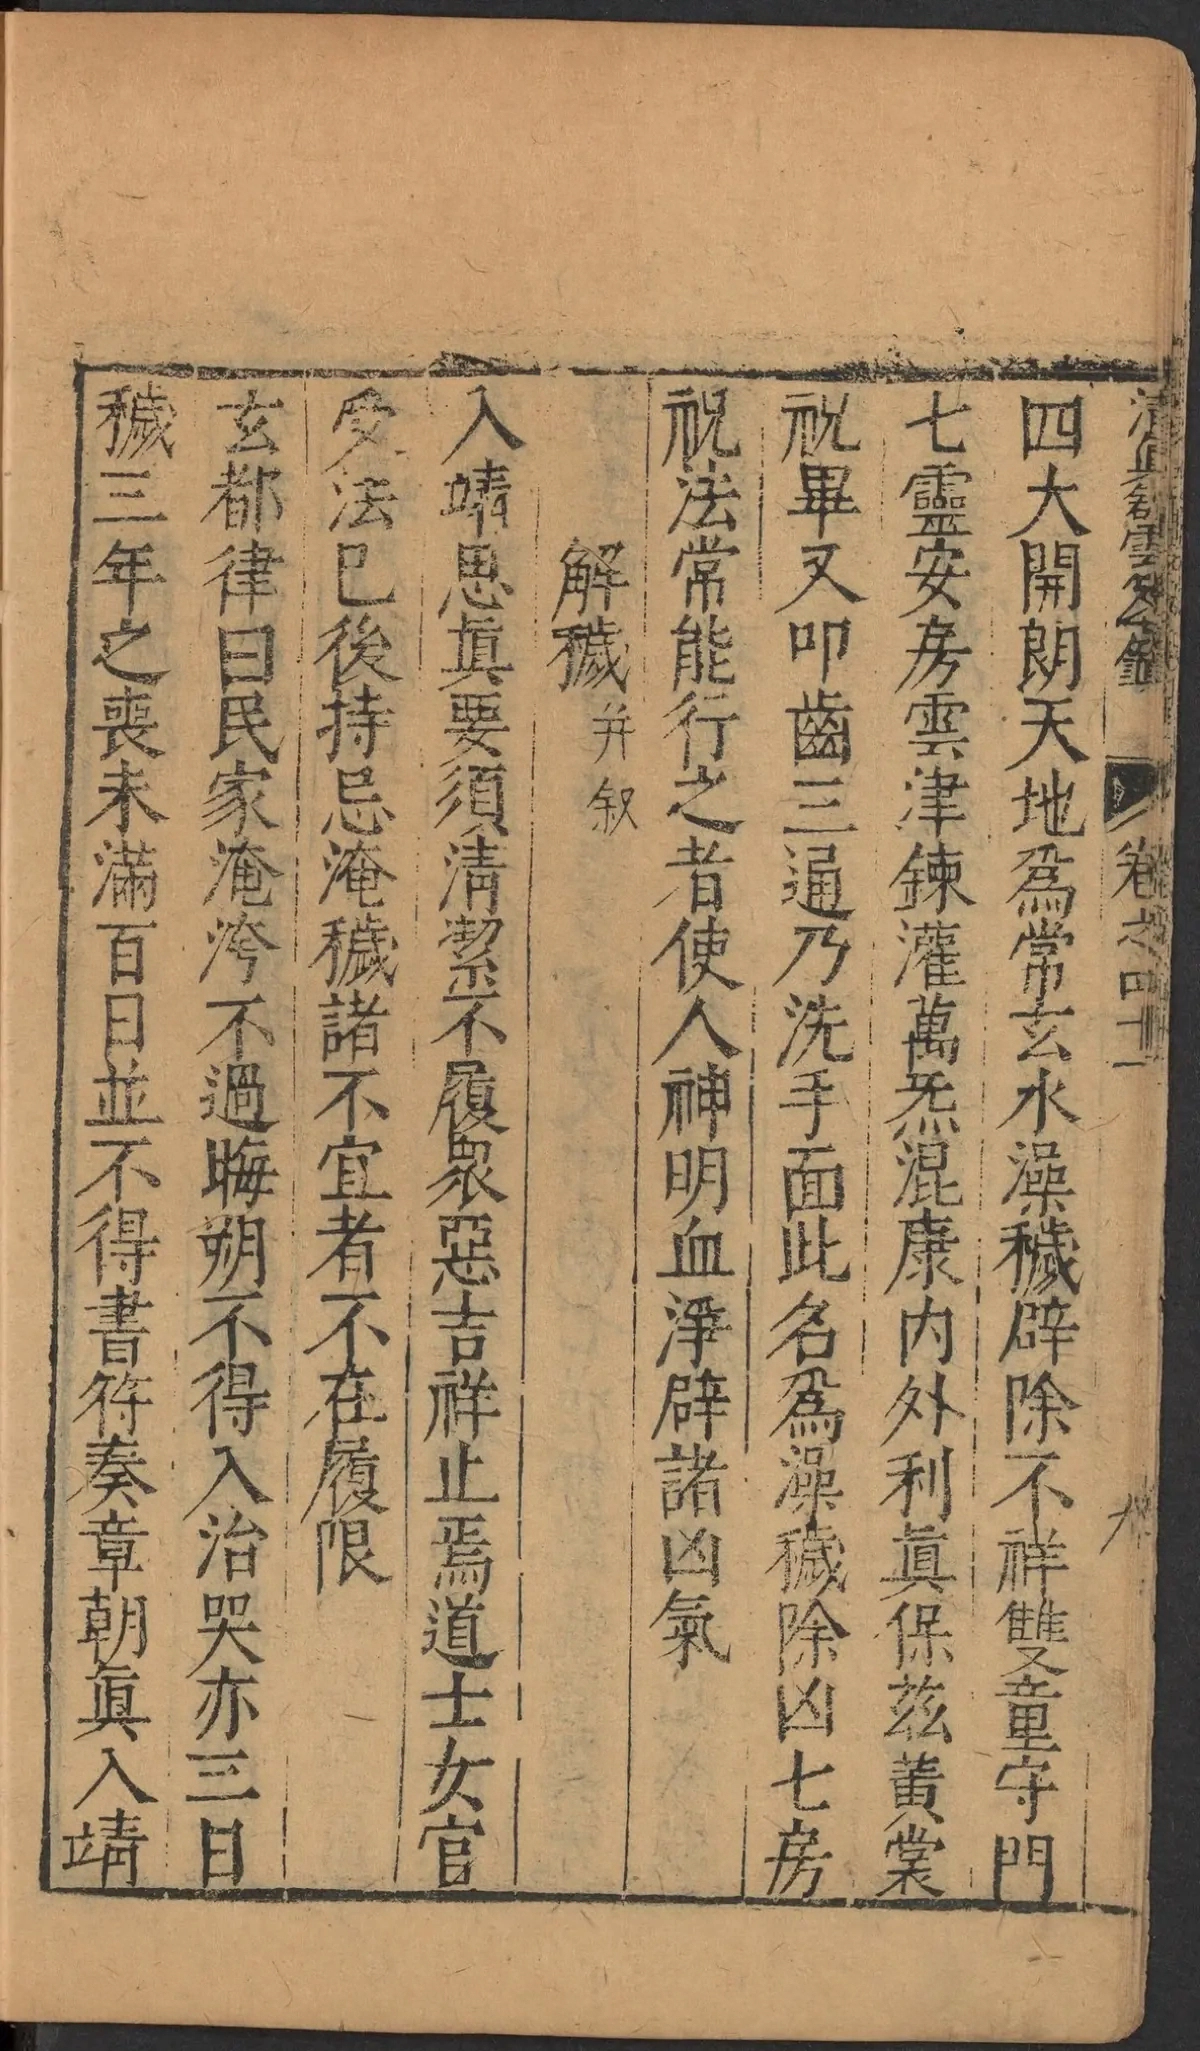 卷之四十一
四大開朗天地爲常玄水澡穢辟除不祥雙童守門
七靈安房雲津鍊灌萬炁混康内外利眞保玆黄裳
祝畢又叩齒三通乃洗手面此名爲澡穢除凶七房
祝法常能行之者使人神明血淨辟諸凶氣
解穢并叙
入靖思眞要須清潔不履衆惡吉祥止焉道士女官
受法已後持忌淹穢諸不宜者不在履限
玄都律曰民家淹洿不過晦朔不得入治哭亦三日
穢三年之喪未滿百日並不得書符奏章朝眞入靖